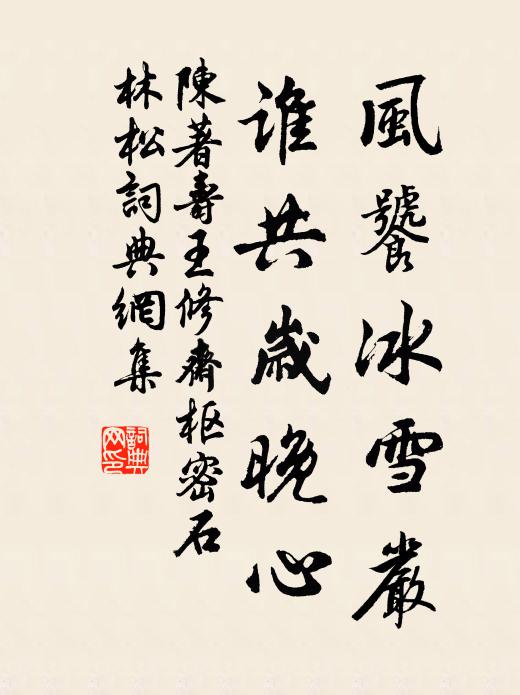 風饕冰雪嚴
誰共歲晚心
陳著壽王修齋枢密石
林松詞典網集
詞典
网印